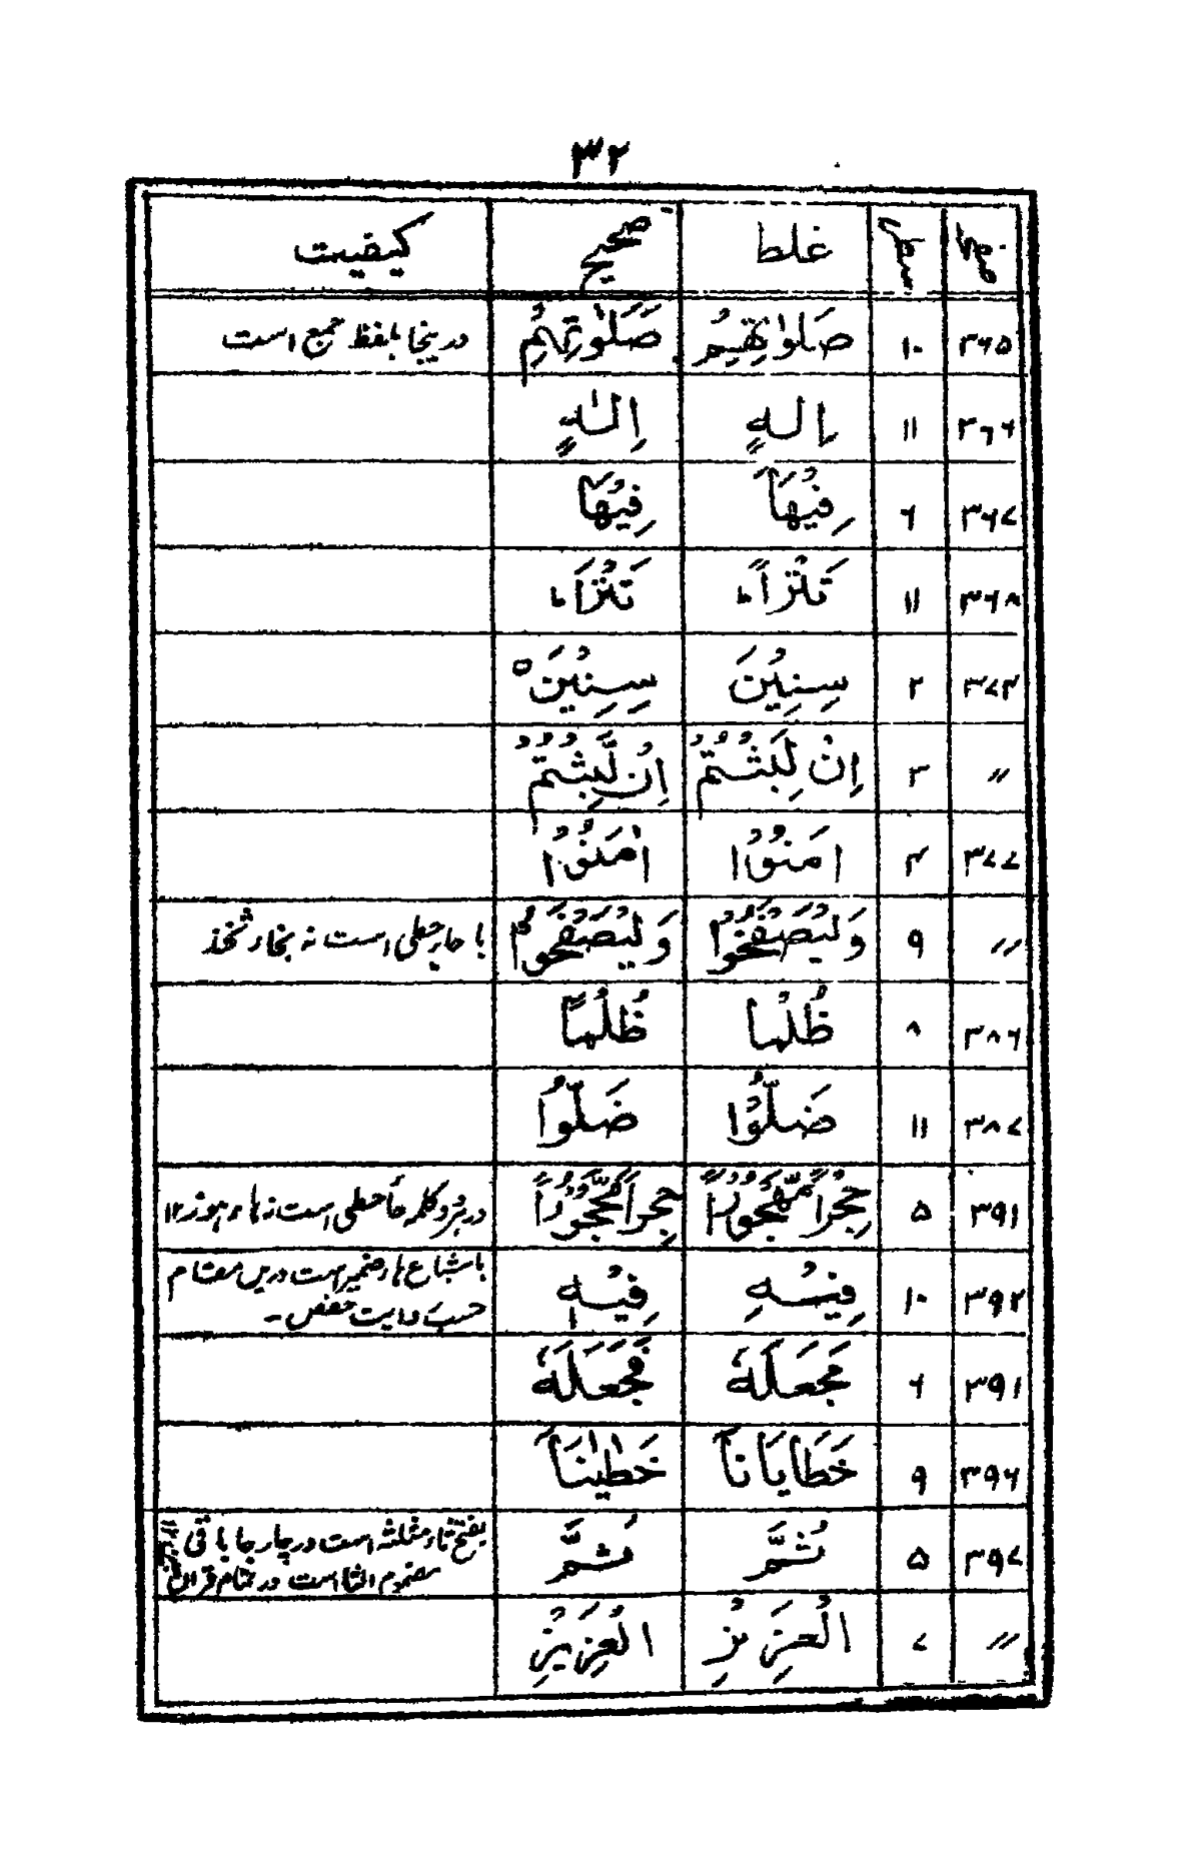 ۳۲
صفحہ سطر غلط صحیح کیفیت
۳۶۵ ۱۰ صَلٰوتِهِیْم صَلَوٰتِهِمْ درینجا بلفظ جمع است
۳۶۶ ۱۱ اِلہٍ اِلٰہٍ
۳۶۷ ۶ فِیْهَاَ فِیْهَا
۳۶۸ ۱۱ تَتْرًا تَتْرَا
۳۷۴ ۲ سِنِیْنَ سِنِیْنَ ۵
〃 ۳ اِنْ لَبِثْتُمْ اِنْ لَّبِثْتُمْ
۳۷۷ ۴ اَمَنُوْا اٰمَنُوْا
〃 ۹ وَلْیَصْفَخُوْا وَلْیَصْفَحُوْا با حاء حطی است نہ بخاء ثخذ
۳۸۶ ۸ ظُلْما ظُلْمًا
۳۸۷ ۱۱ ضَلُّوْا ضَلُّوا
۳۹۱ ۵ حِجْرًا مَّهْجُوْرًا حِجْرًا مَّحْجُوْرًا در ہر دو کلمہ حاً حطی است نہ ہاء ہوز ۱۲
۳۹۲ ۱۰ فِیْہِ فِیْہٖ باشباع ہاء ضمیر است دریں مقام
حسب روایت حفص ۔
۳۹۱ ۶ فَجَعَلَهٗ فَجَعَلَهٗ
۳۹۶ ۹ خَطَایَانَا خَطٰیٰنَا
۳۹۷ ۵ ثُمَّ ثَمَّ بفتح ثاء مثلثہ است در چار جا باقی
مضموم الثا است در تمام قرآن
〃 ۷ الْعَزِیْزِ الْعَزِیْزِ